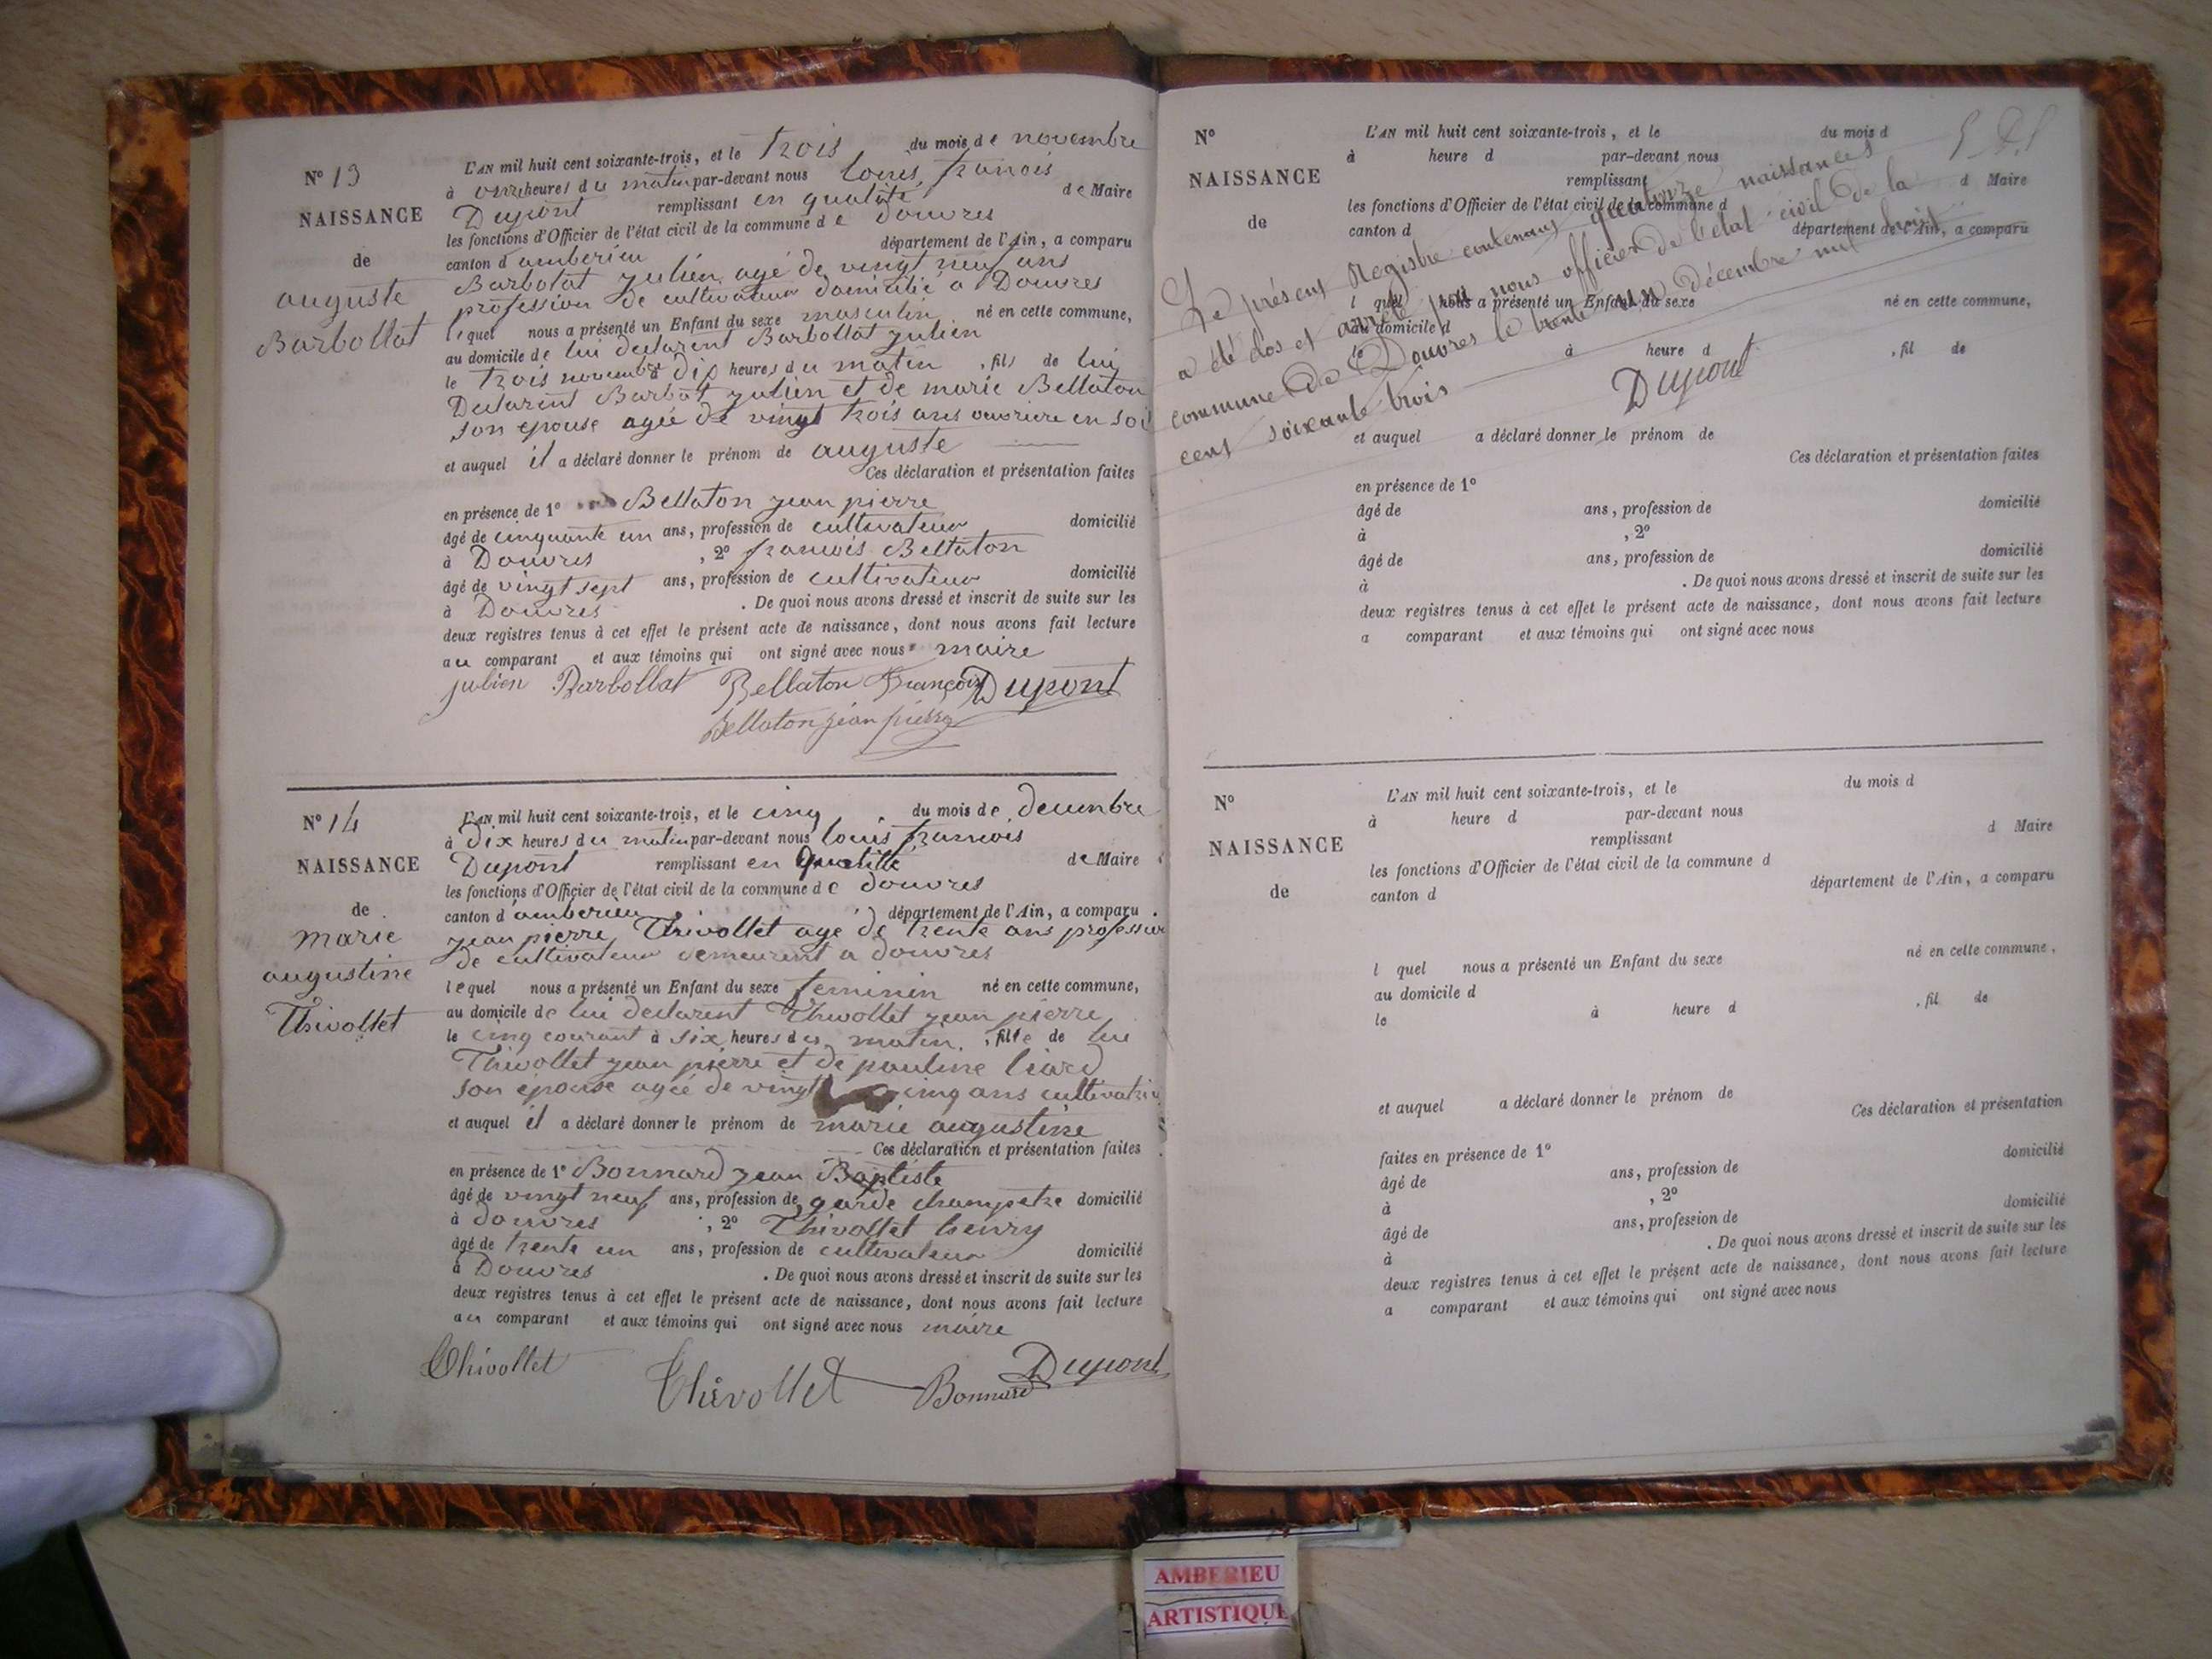 N° 13
NAISSANCE
de
auguste
Barbollat
L'AN mil huit cent soixante-trois, et le trois du mois de novembre
à onze heures du matin par-devant nous louis francois
Dupont remplissant en qualité de Maire
les fonctions d'Officier de l'état civil de la commune de douvres
canton d'amberieu département de l'Ain, a comparu
Barbolat julien agé de vingt neuf ans
profession de cultivateur domicilié a Douvres
lequel nous a présenté un Enfant du sexe masculin né en cette commune,
au domicile de lui declarent Barbollat julien
le trois novembre à dix heures du matin, fils de lui
Declarent Barbot julien et de marie Bellaton
son epouse agée de vingt trois ans ouvriere en soi
et auquel il a déclaré donner le prénom de auguste
Ces déclaration et présentation faites
en présence de 1° Bellaton jean pierre
âgé de cinquante un ans, profession de cultivateur domicilié
à Douvres, 2° francois Bellaton
âgé de vingt sept ans, profession de cultivateur domicilié
à Douvres. De quoi nous avons dressé et inscrit de suite sur les
deux registres tenus à cet effet le présent acte de naissance, dont nous avons fait lecture
au comparant et aux témoins qui ont signé avec nous maire
julien Barbollat Bellaton François Dupont
Bellaton jean pierre
N° 14
NAISSANCE
de
marie
augustine
Thivollet
L'AN mil huit cent soixante-trois, et le cinq du mois de decembre
à Dix heures du matin par-devant nous louis francois
Dupont remplissant en qualité de Maire
les fonctions d'Officier de l'état civil de la commune de douvres
canton d'amberieu département de l'Ain, a comparu
jean pierre Thivollet age de trente ans profession
de cultivateur demeurent a douvres
lequel nous a présenté un Enfant du sexe feminin né en cette commune,
au domicile de lui declarent Thivollet jean pierre
le cinq courant à six heures du matin, fille de lui
Thivollet jean pierre et de pauline liard
son épouse agée de vingt cinq ans cultivatrice
et auquel il a déclaré donner le prénom de marie augustine
Ces déclaration et présentation faites
en présence de 1° Bonnard jean Baptiste
âgé de vingt neuf ans, profession de garde champetre domicilié
à douvres, 2° Thivollet henry
âgé de trente un ans, profession de cultivateur domicilié
à Douvres. De quoi nous avons dressé et inscrit de suite sur les
deux registres tenus à cet effet le présent acte de naissance, dont nous avons fait lecture
au comparant et aux témoins qui ont signé avec nous maire
Thivollet Thivollet Bonnard Dupont
N°
NAISSANCE
de
L'AN mil huit cent soixante-trois, et le du mois d
à heure d par-devant nous
remplissant d Maire
les fonctions d'Officier de l'état civil de la commune d
canton d département de l'Ain, a comparu
l quel nous a présenté un Enfant du sexe né en cette commune,
au domicile d
le à heure d , fil de
Le présent Registre contenant quatorze naissances
a été clos et arrêté par nous officier de l'état civil de la
commune de Douvres le trente un décembre mil huit
cent soixante trois
Dupont
et auquel a déclaré donner le prénom de
Ces déclaration et présentation faites
en présence de 1°
âgé de ans, profession de domicilié
à , 2°
âgé de ans, profession de domicilié
à . De quoi nous avons dressé et inscrit de suite sur les
deux registres tenus à cet effet le présent acte de naissance, dont nous avons fait lecture
a comparant et aux témoins qui ont signé avec nous
N°
NAISSANCE
de
L'AN mil huit cent soixante-trois, et le du mois d
à heure d par-devant nous
remplissant d Maire
les fonctions d'Officier de l'état civil de la commune d
canton d département de l'Ain, a comparu
l quel nous a présenté un Enfant du sexe né en cette commune,
au domicile d
le à heure d , fil de
et auquel a déclaré donner le prénom de
Ces déclaration et présentation
faites en présence de 1° domicilié
âgé de ans, profession de
à , 2° domicilié
âgé de ans, profession de
à . De quoi nous avons dressé et inscrit de suite sur les
deux registres tenus à cet effet le présent acte de naissance, dont nous avons fait lecture
a comparant et aux témoins qui ont signé avec nous
AMBERIEU
ARTISTIQUE